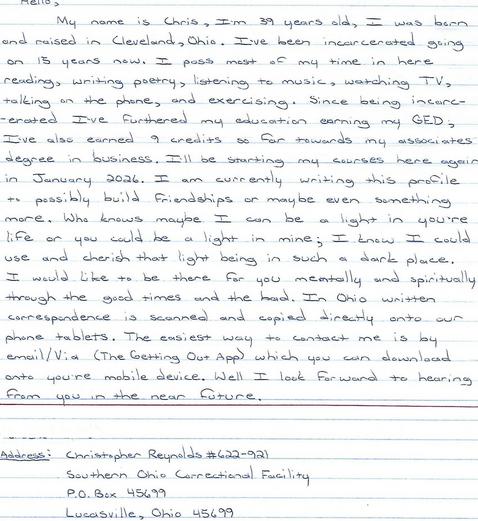 Hello,
My name is Chris, I'm 39 years old, I was born
and raised in Cleveland, Ohio. I've been incarcerated going
on 15 years now. I pass most of my time in here
reading, writing poetry, listening to music, watching TV,
talking on the phone, and exercising. Since being incarc-
-erated I've furthered my education earning my GED;
I've also earned 9 credits so far towards my associates
degree in business. I'll be starting my courses here again
in January 2026. I am currently writing this profile
to possibly build friendships or maybe even something
more. Who knows maybe I can be a light in you're
life or you could be a light in mine; I know I could
use and cherish that light being in such a dark place.
I would like to be there for you mentally and spiritually
through the good times and the bad. In Ohio written
correspondence is scanned and copied directly onto our
phone tablets. The easiest way to contact me is by
email/Via (The Getting Out App) which you can download
onto you're mobile device. Well I look forward to hearing
from you in the near future.
Address: Christopher Reynolds #622-921
Southern Ohio Correctional Facility
P.O. Box 45699
Lucasville, Ohio 45699